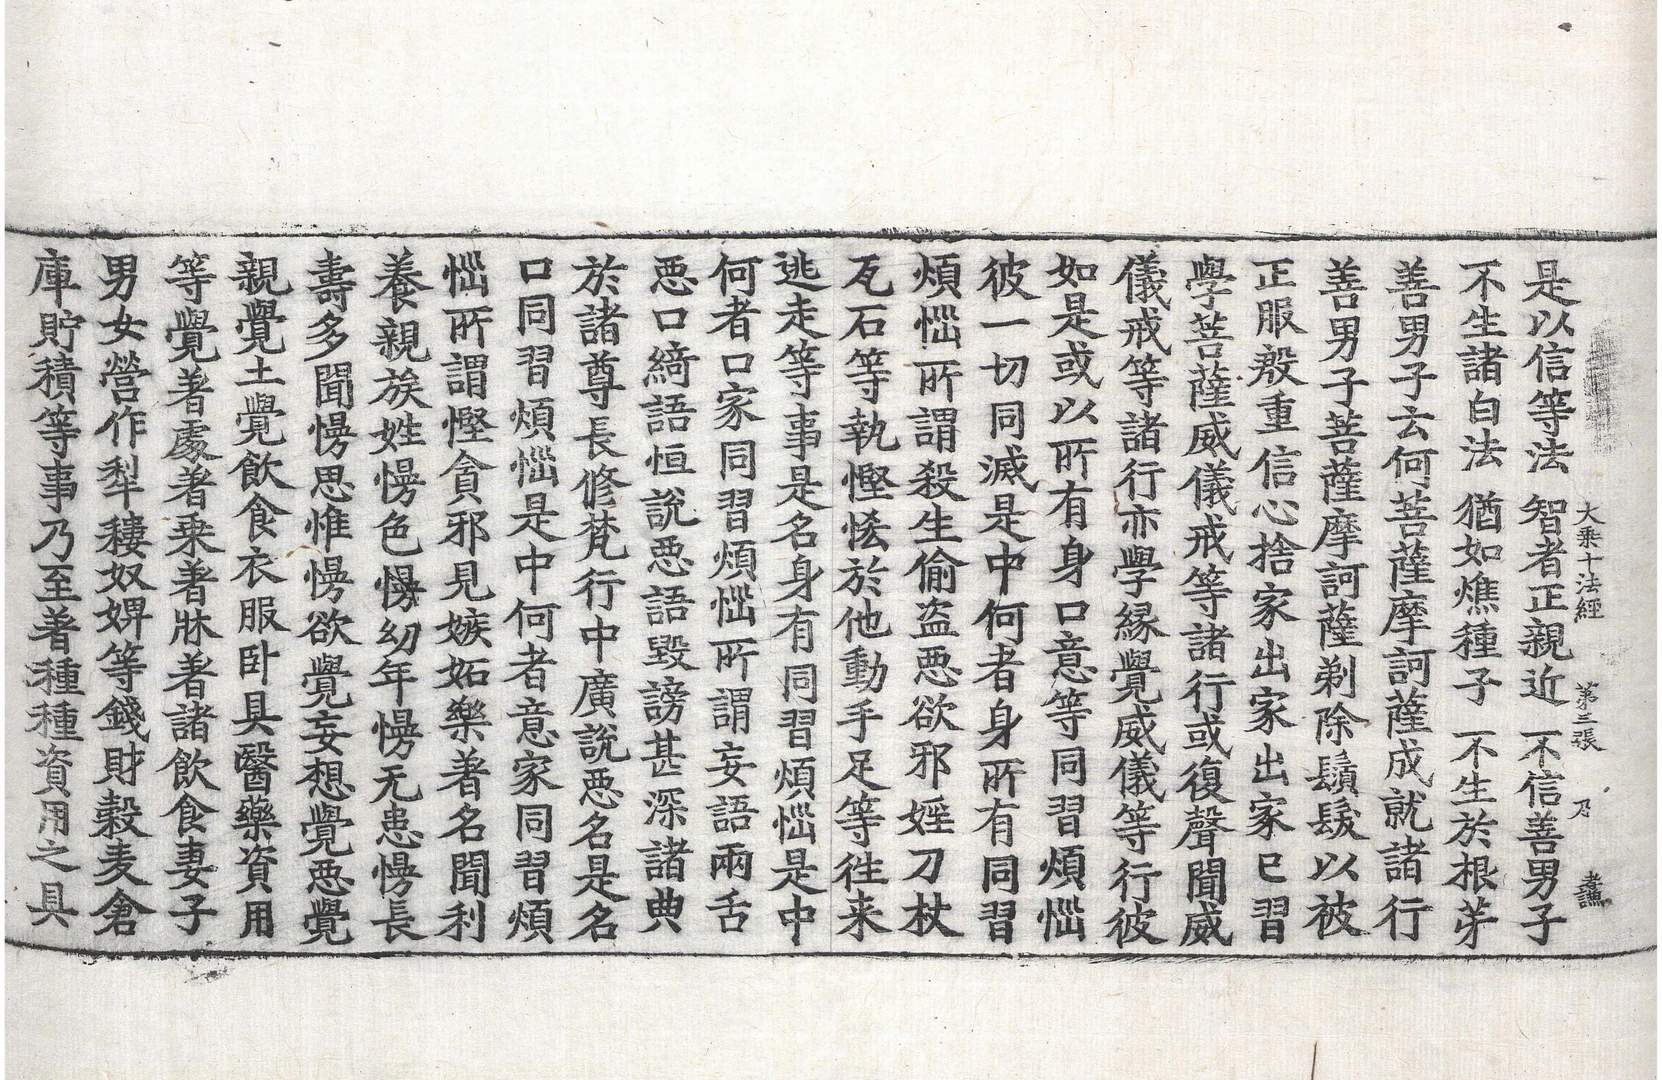 大乘十法經 第三張 乃 
是以信等法 智者正親近 不信善男子
不生諸白法 猶如燋種子 不生於根芽
善男子云何菩薩摩訶薩成就諸行
善男子菩薩摩訶薩剃除鬚髮以被
正服殷重信心捨家出家出家已習
學菩薩威儀戒等諸行或復聲聞威
儀戒等諸行亦學緣覺威儀等行彼
如是或以所有身口意等同習煩惱
彼一切同滅是中何者身所有同習
煩惱所謂殺生偷盗惡欲邪婬刀杖
瓦石等執慳悋於他動手足等往来
逃走等事是名身有同習煩惱是中
何者口家同習煩惱所謂妄語兩舌
惡口綺語恒說惡語毀謗甚深諸典
於諸尊長修梵行中廣說惡名是名
口同習煩惱是中何者意家同習煩
惱所謂慳貪邪見嫉妬樂著名聞利
養親族姓慢色慢幼年慢无患慢長
壽多聞慢思惟慢欲覺妄想覺惡覺
親覺土覺飲食衣服卧具醫藥資用
等覺著處著乗著牀著諸飲食妻子
男女營作犁耬奴婢等錢財穀麦倉
庫貯積等事乃至著種種資用之具